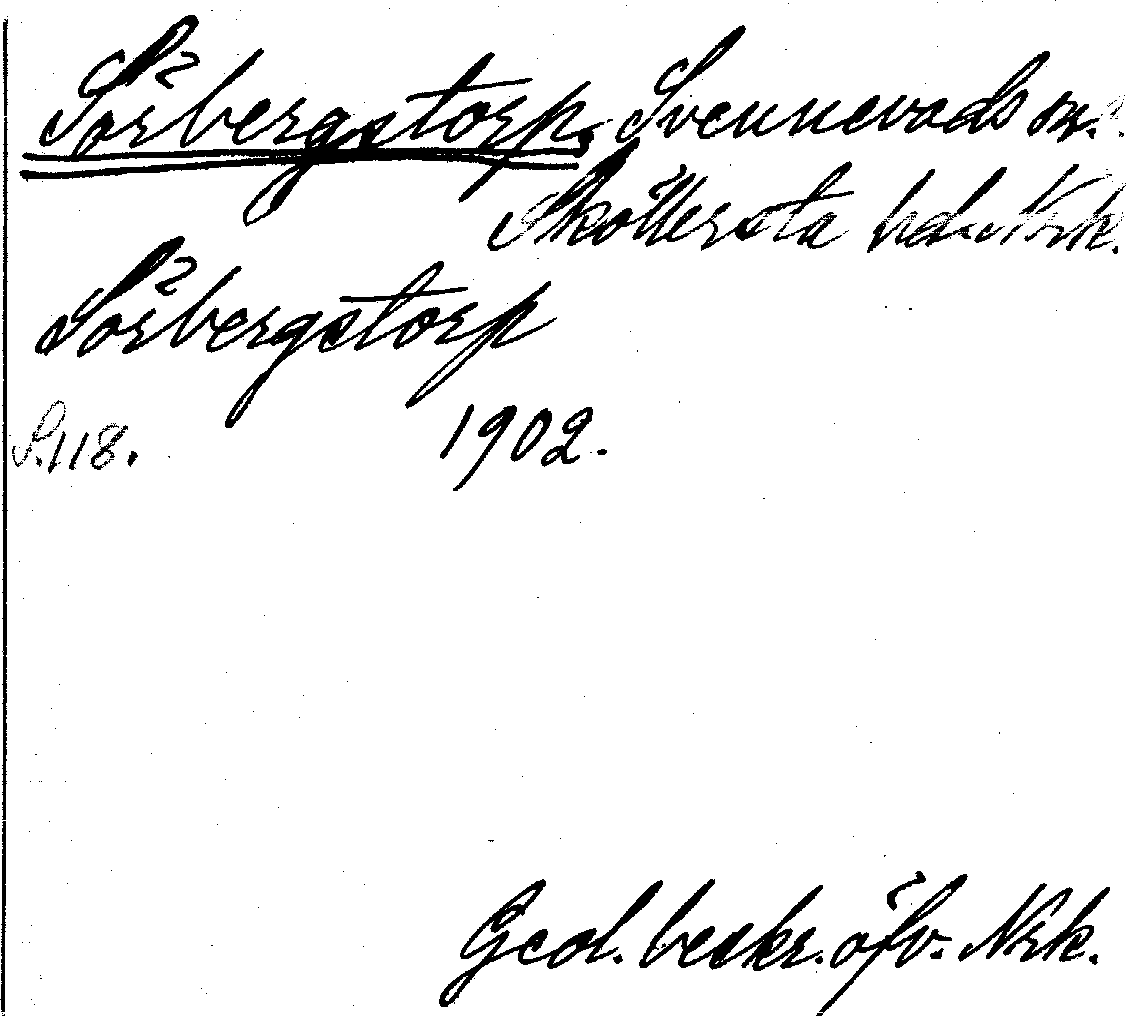 Sörbergstorp, Svennevads sn.
Sköllersta hd. Nrk.
Sörbergstorp
S. 118. 1902.
Geol. beskr. öfv. Nrk.